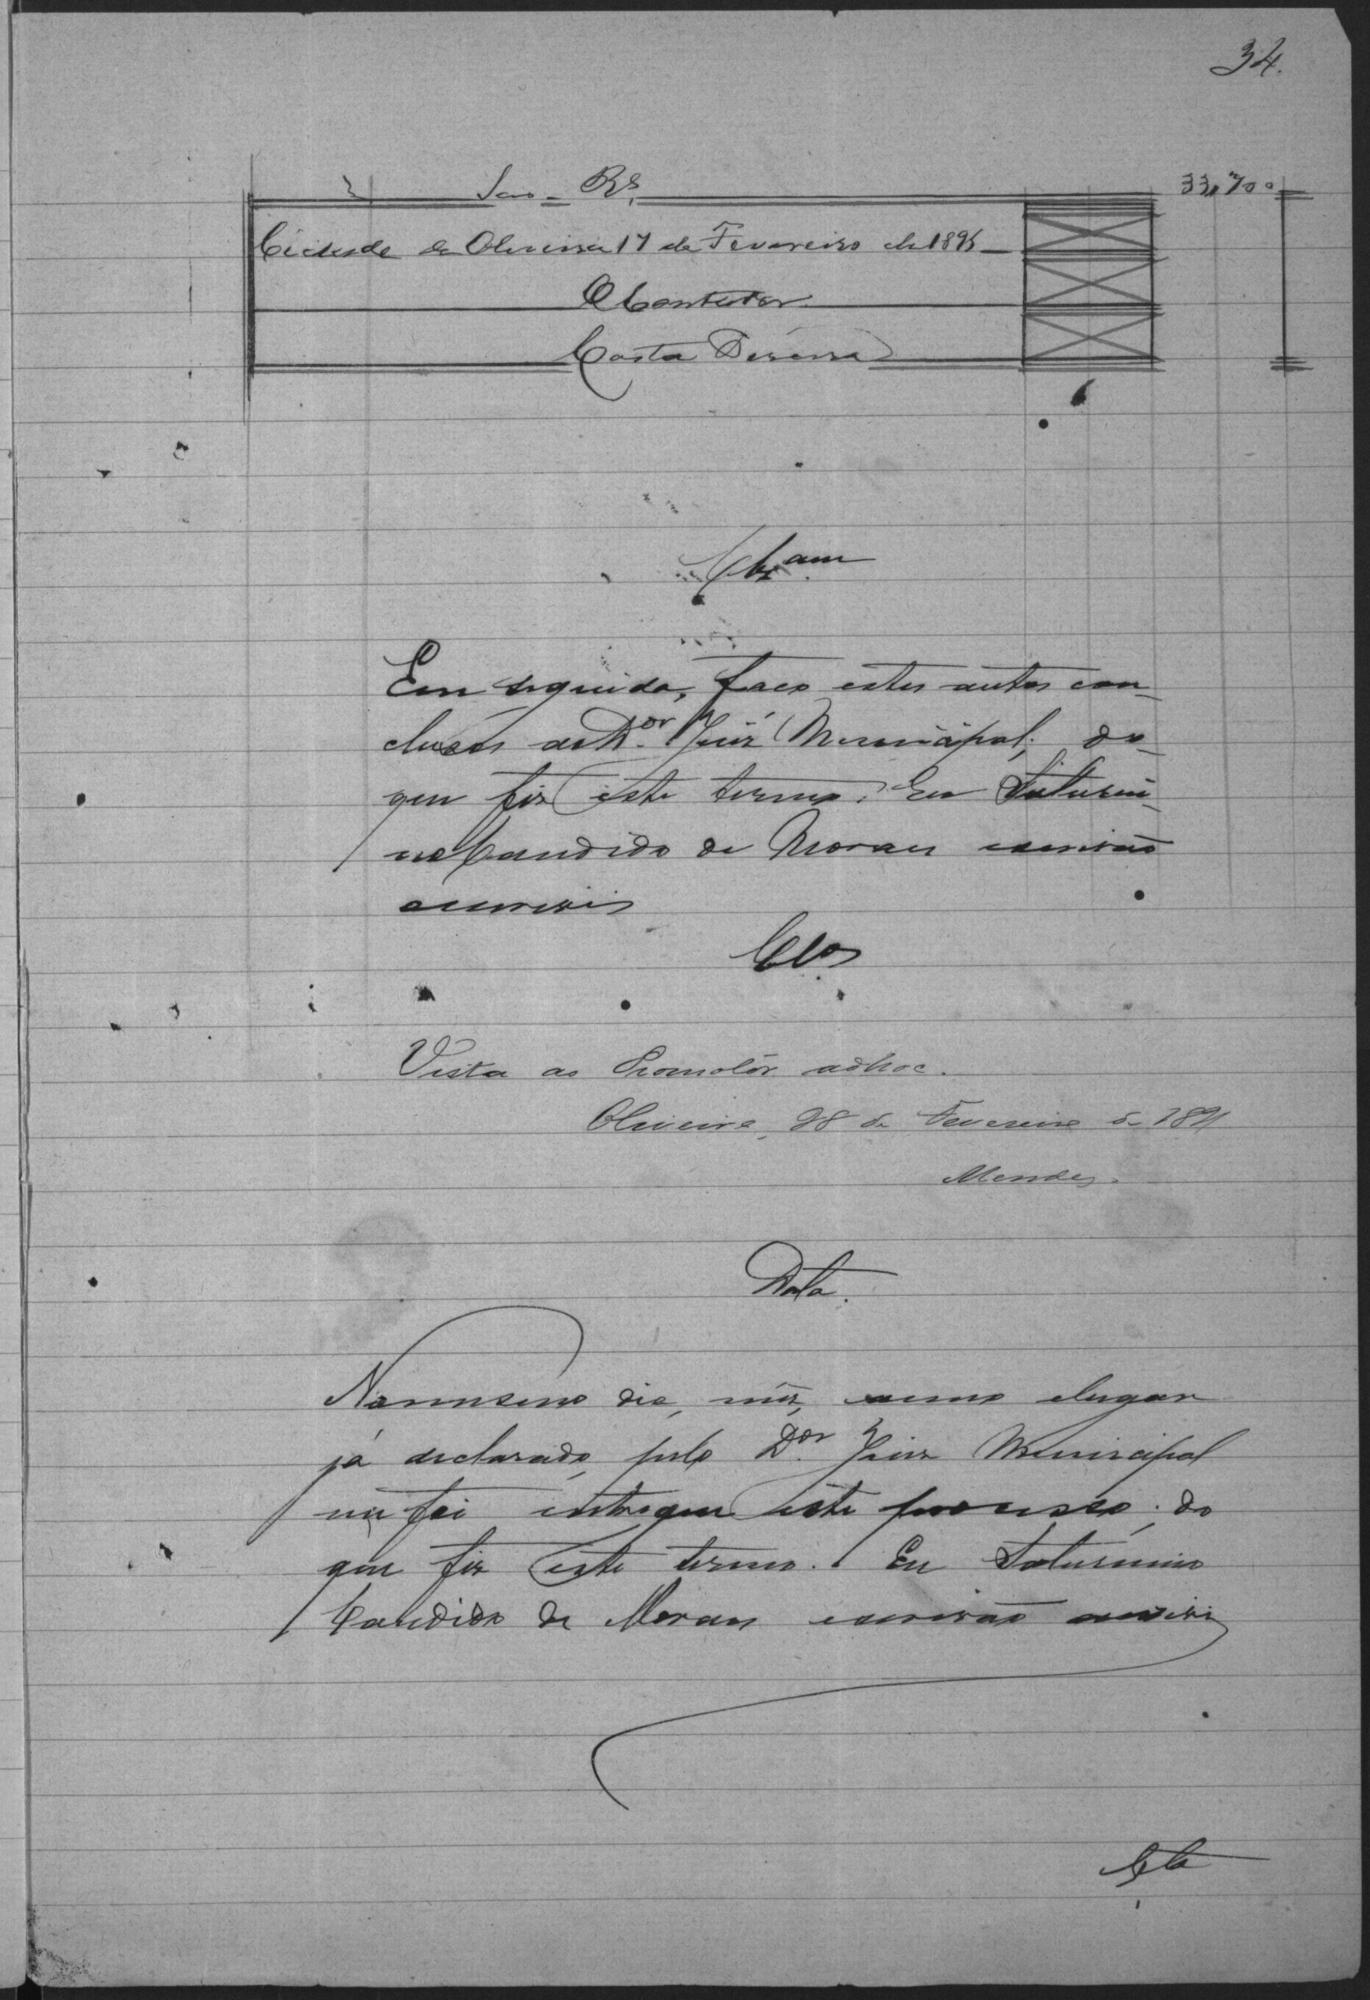 34.
Rs. 33,700
Cidade de Oliveira 17 de Fevereiro de 1895
O Contador
Costa Pereira
Clzam
Em seguida, faço estes autos con-
clusos ao Dor. Juiz Municipal; do
que fiz este termo. Eu Saturni-
no Candido de Moraes escrivão
escrevi
Clos
Vista ao Promotor adhoc.
Oliveira, 28 de Fevereiro de 189
Mendes.
Data.
No mesmo dia, mez, anno e lugar
já declarado, pelo Dor. Juiz Municipal
me foi entregue este processo; do
que fiz este termo. Eu Saturnino
Candido de Moraes escrivão escrevi